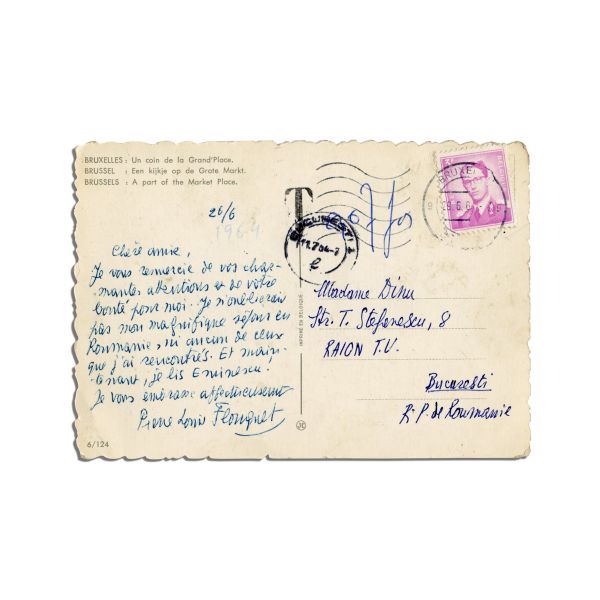 BRUXELLES : Un coin de la Grand'Place.
BRUSSEL : Een kijkje op de Grote Markt.
BRUSSELS : A part of the Market Place.
26/6
1964
Chère amie,
Je vous remercie de vos char-
mantes attentions & de votre
bonté pour moi. Je n'oublierai
pas mon magnifique séjour en
Roumanie, ni aucun de ceux
que j'ai rencontrés. Et main-
tenant, je lis Eminescu!
Je vous embrasse affectueusement
Pierre Louis Flouquet
6/124
T
BUCURESTI
11.7.64
IMPRIMÉ EN BELGIQUE
JC
BRUXEL
BELGIE
Madame Dinu
Str. T. Stefanescu, 8
RAION T.V.
Bucaresti
R.P. de Roumanie